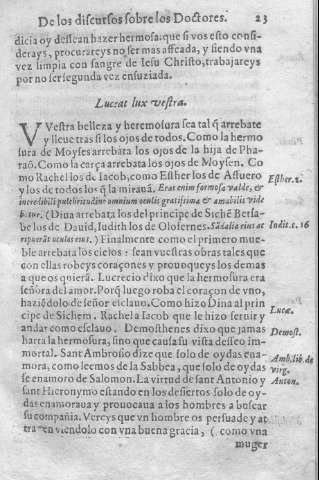 De los discursos sobre los Doctores. 23
dicia oy dessean hazer hermosa: que si vos esto consi-
derays, procurareys no ser mas affeada, y siendo vna
vez limpia con sangre de Iesu Christo, trabajareys
por no ser segunda vez ensuziada.
Luceat lux vestra.
VVestra belleza y heremosura sea tal q̃ arrebate
y lleue tras si los ojos de todos. Como la hermo
sura de Moyses arrebata los ojos de la hija de Pha-
raõ. Como la carça arrebata los ojos de Moysen. Co
mo Rachel los de Iacob, como Esther los de Assuero
y los de todos los q̃ la mirauã. Erat enim formosa valde, &
Esther. 2.
incredibili pulchritudine omnium oculis gratissima & amabilis vide
batur. (Dina arrebata los del principe de Sichẽ Bersa-
be los de Dauid, Iudith los de Olofernes. Sãdalia eius ar
Indit. c. 16
ripuerũt oculos eius.) Finalmente como el primero mue-
ble arrebata los cielos: sean vuestras obras tales que
con ellas robeys coraçones y prouoqueys los demas
a que os quierã. Lucrecio dixo que la hermosura era
señora del amor. Porq̃ luego roba el coraçon de vno,
haziẽdolo de señor esclauo. Como hizo Dina al prin
cipe de Sichem. Rachel a Iacob que le hizo seruir y
Lucæ.
andar como esclauo. Demosthenes dixo que jamas
harta la hermosura, sino que causa su vista desseo im-
Demost.
mortal. Sant Ambrosio dize que solo de oydas ena-
mora, como leemos de la Sabbea, que solo de oydas
Amb. lib. de
se enamoro de Salomon. La virtud de sant Antonio y
virg.
sant Hieronymo estando en los desiertos solo de oy-
Anton.
das enamoraua y prouocaua a los hombres a buscar
su compañia. Vereys que vn hombre os persuade y at
trae en viendolo con vna buena gracia, ( como vna
muger